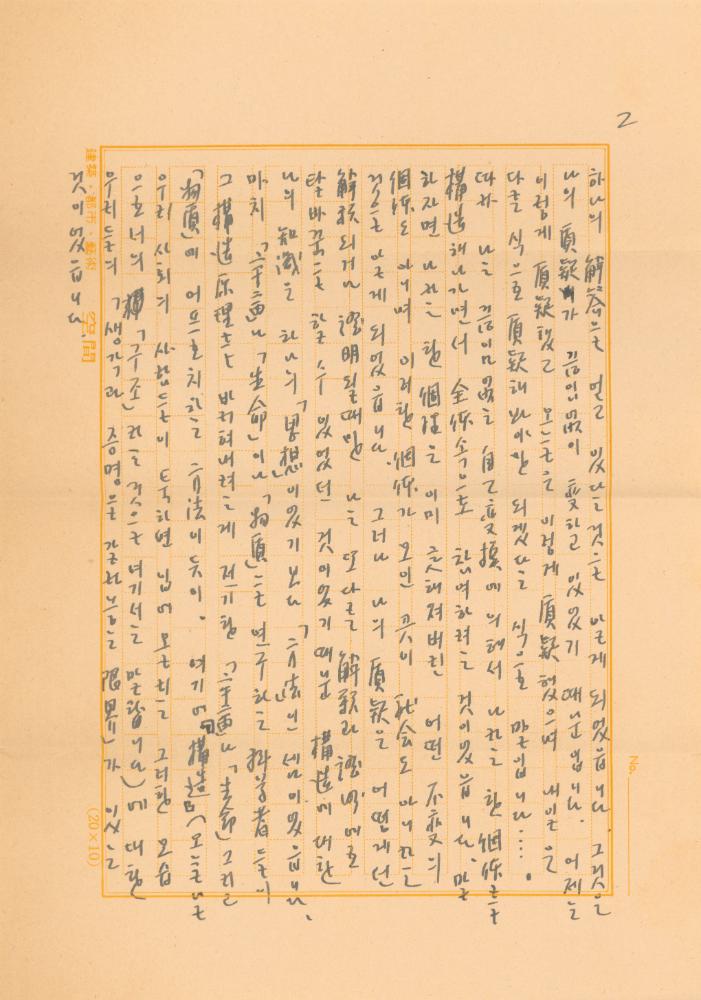 2
하나의 解答으로 얻고 있다는 것을 알게 되었읍니다. 그것은
나의 質疑가 끊임없이 變하고 있었기 때문입니다. 어제는
이렇게 質疑했고 오늘은 이렇게 質疑했으며 내일은
다른 식으로 質疑해봐야만 되겠다는 식으로 말입니다....
따라 나는 끊임없는 自己變換에 의해서 나라는 한 個体를
構造해나가면서 全体속으로 참여하려는 것이었읍니다. 말
하자면 나라는 한 個性은 이미 굿해져버린 어떤 不變의
個体도 아니며 이러한 個体가 모인 곳이 社会도 아니라는
것을 알게 되었읍니다. 그러나 나의 質疑은 어떻게던
解釈되거나 證明될때만 나는 또다른 解釈과 證明에로
탈바꿈을 할 수 있었던 것이었기 때문 構造에 대한
나의 知識은 하나의 「思想」이었기보다 「方法」인 셈이었읍니다.
마치 「平面」나 「生命」이나 「物質」을 연구하는 科学者들이
그 構造原理를 밝혀내려는게 전기한 「平面」나 「生命」 그리고
「物質」에 어프로치하는 方法이듯이. 여기에 構造 (오늘날
우리 사회의 사람들이 툭하면 입에 올리는 그러한 모습
으로서의 「구조」라는 것으로 여기서는 말합니다)에 대한
우리들의 「생각과 증명을 가로놓는 限界」가 있는
것이었읍니다.
建築·都市·藝術 空間
No.
(20×10)